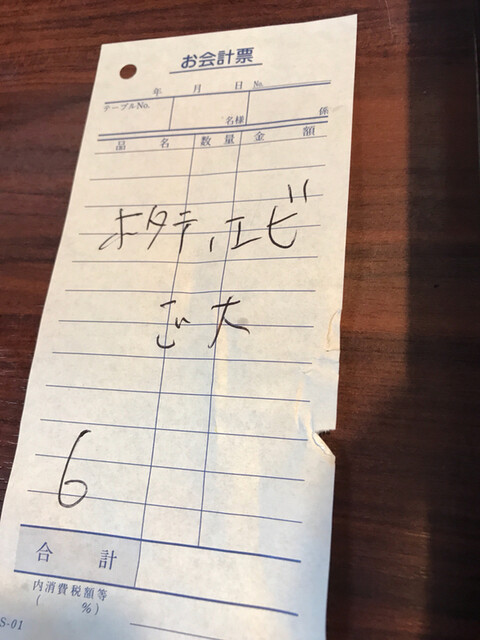 お会計票
年 月 日 No.
テーブルNo. 名様 係
品名 数量 金額
ホタテ、エビ
ご大
6
合計
内消費税額等
( %)
S-01